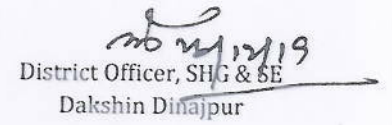 District Officer, SHG & SE
Dakshin Dinajpur